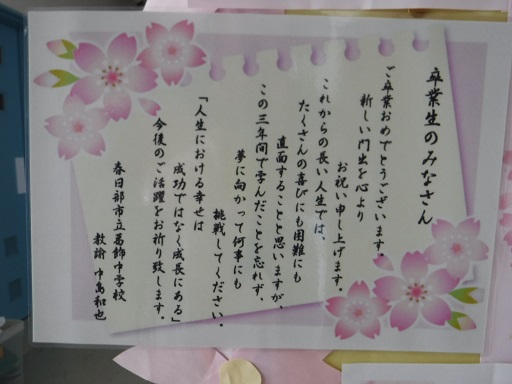 卒業生のみなさん
ご卒業おめでとうございます。
新しい門出を心より
お祝い申し上げます。
これからの長い人生では、
たくさんの喜びにも困難にも
直面することと思いますが、
この三年間で学んだことを忘れず、
夢に向かって何事にも
挑戦してください。
「人生における幸せは
成功ではなく成長にある」
今後のご活躍をお祈り致します。
春日部市立葛飾中学校
教諭 中島和也